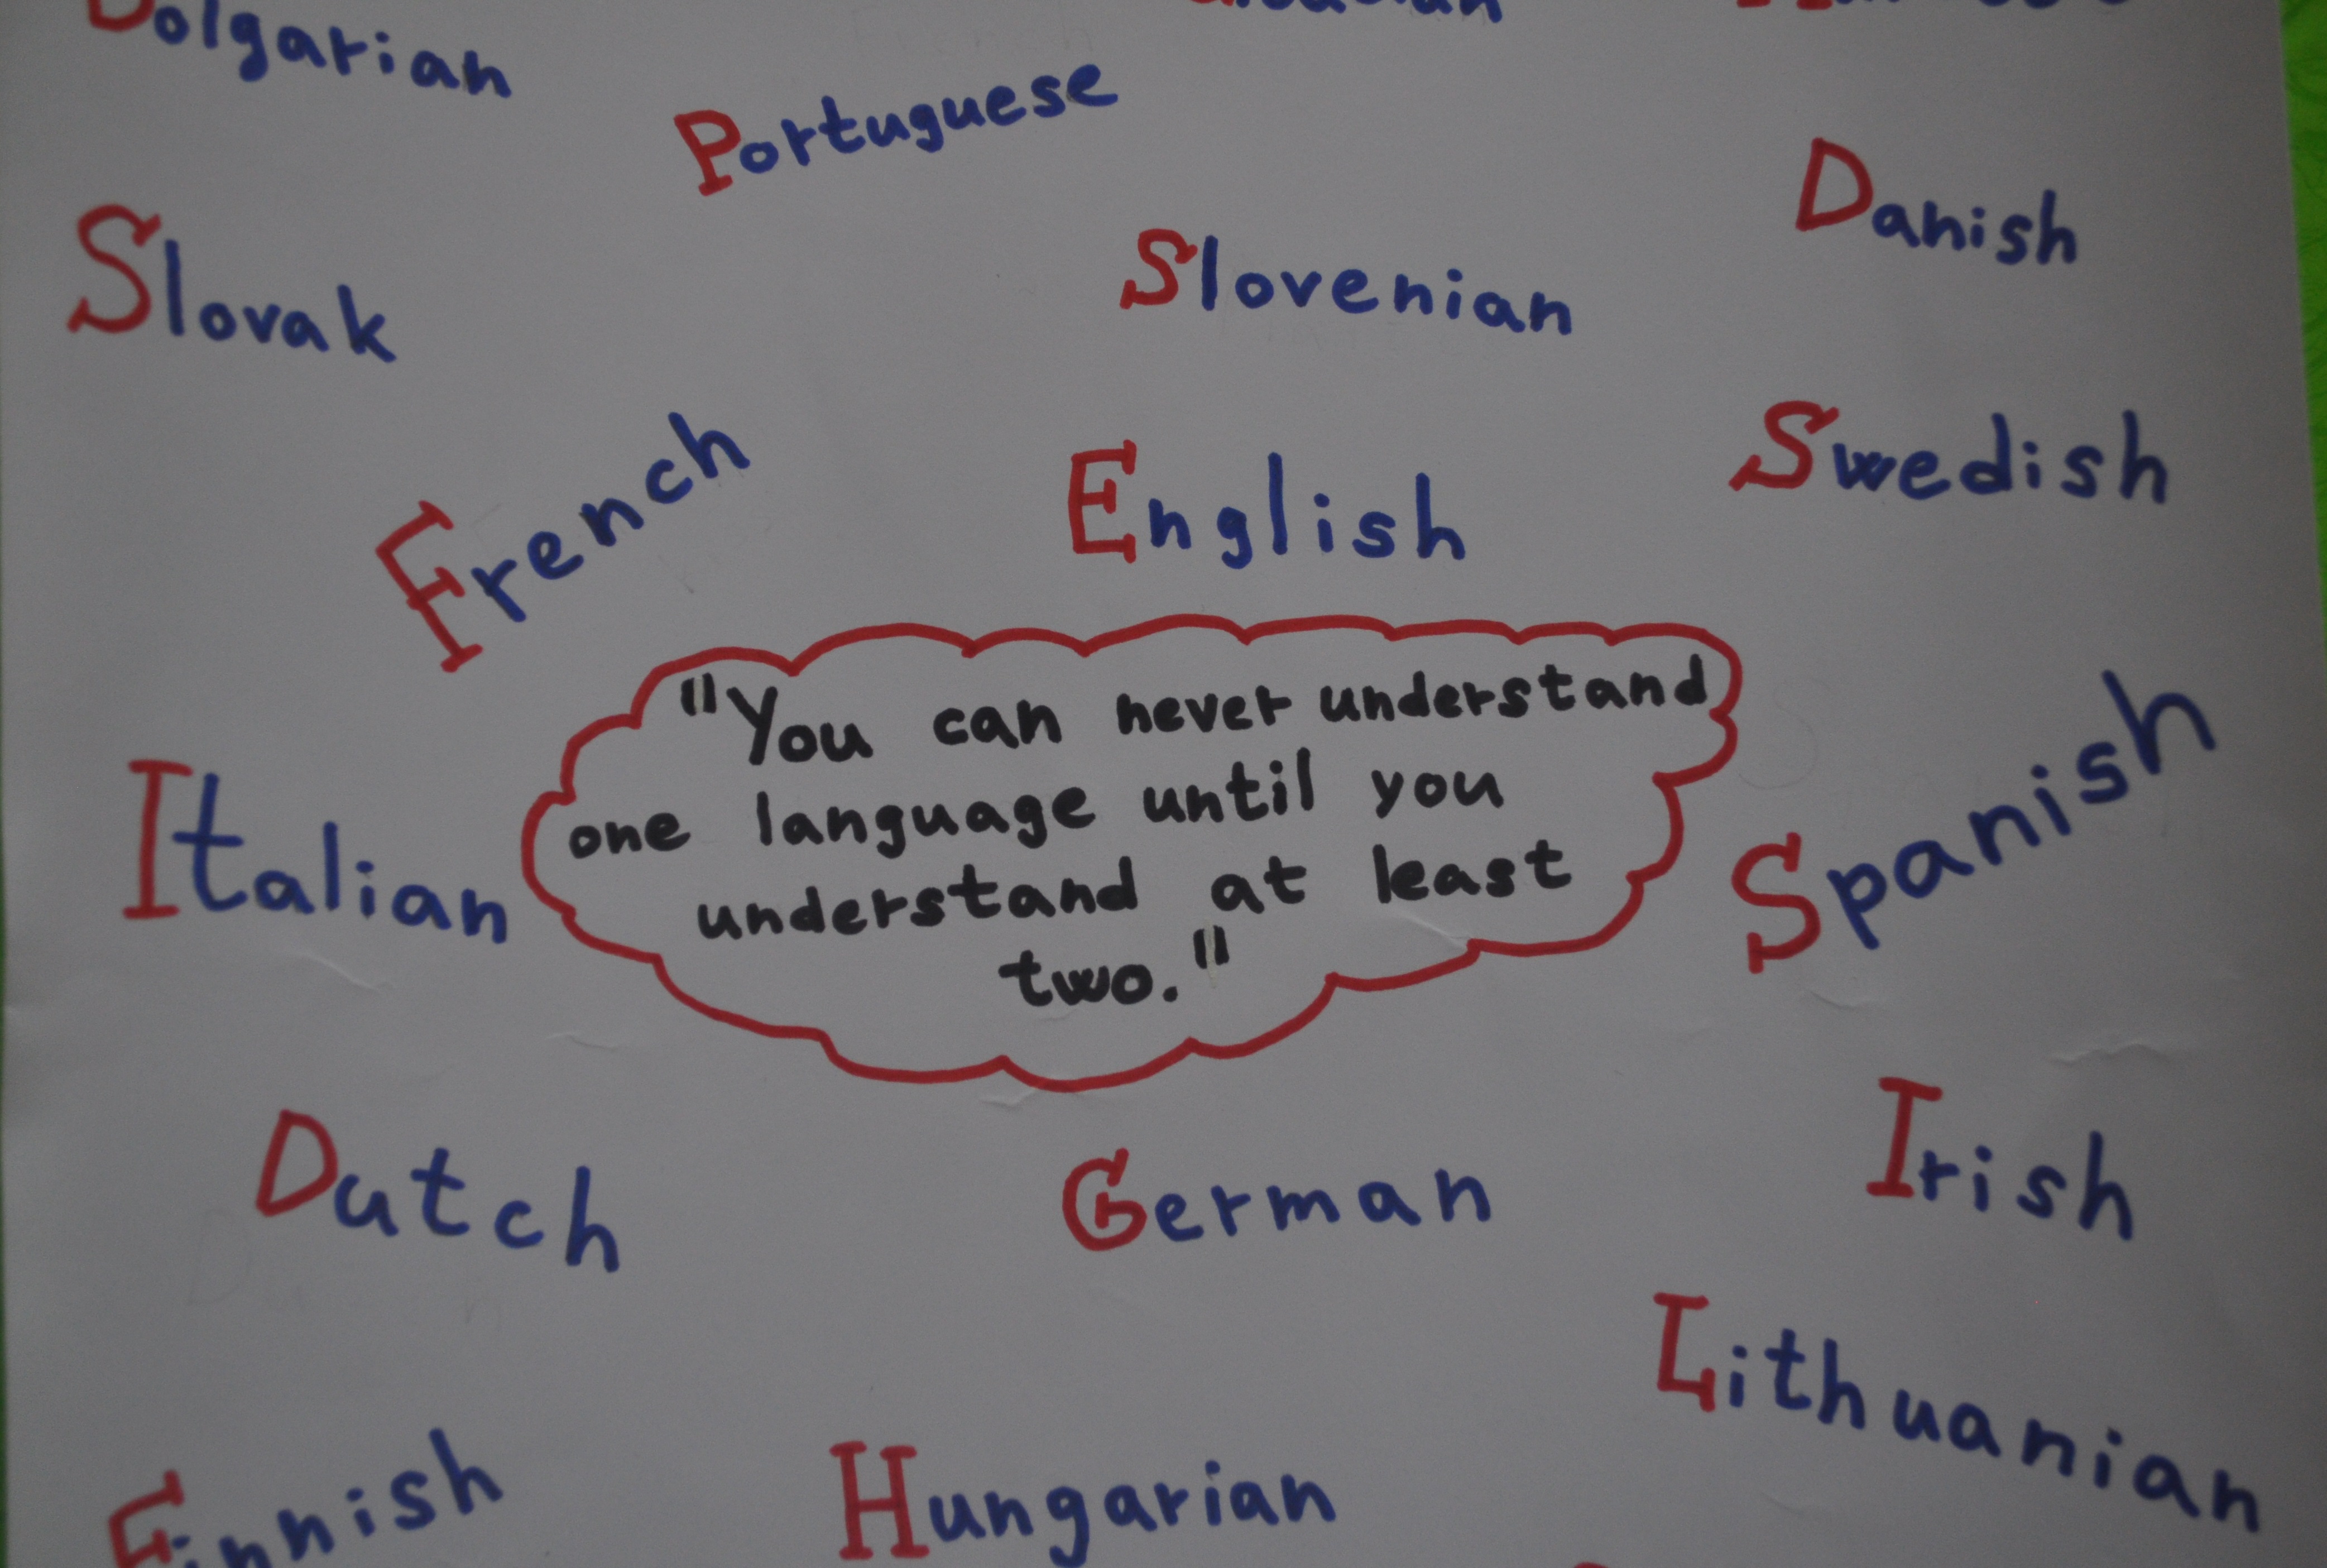 Portuguese
Danish
Slovak
Slovenian
French
English
Swedish
"You can never understand
one language until you
understand at least
two."
Italian
Spanish
Dutch
German
Irish
Lithuanian
Finnish
Hungarian